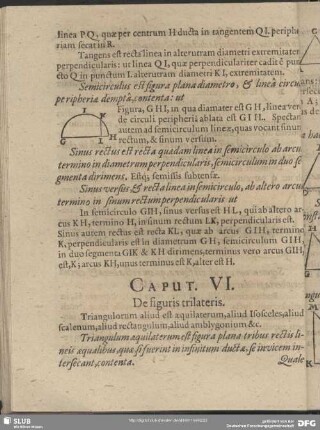 linea PQ, quæ per centrum H ducta in tangentem QI, periphe
riam secat in R.
Tangens est recta linea in alterutram diametri extremitatem
perpendicularis: ut linea QI, quæ perpendiculariter cadit è pun
cto Q in punctum I, alterutram diametri KI, extremitatem.
Semicirculus est figura plana diametro, & linea circuli
peripheria demptâ, contenta: ut
Figura, GHI, in qua diamater est GH, linea ver
de circuli peripheria ablata est GIH. Spectat
autem ad semicirculum lineæ, quas vocant sinum
rectum, & sinum versum.
Sinus rectus est recta quædam linea in semicirculo ab arcu
termino in diametrum perpendicularis, semicirculum in duo se
gmenta dirimens, Estq; semissis subtensæ.
Sinus versus est recta linea in semicirculo, ab altero arcus
termino in sinum rectum perpendicularis ut
In semicirculo GIH, sinus versus est HL, qui ab altero ar
cus KH, termino H, in sinum rectum LK, perpendicularis est.
Sinus autem rectus est recta KL, quæ ab arcus GIH, termino
K, perpendicularis est in diametrum GH, semicirculum GIH,
in duo segmenta GIK & KH dirimens, terminus vero arcus GIH,
est, K; arcus KH, unus terminus est K, alter est H.
CAPUT. VI.
De figuris trilateris.
Triangulorum aliud est æquilaterum, aliud Isosceles, aliud
scalenum, aliud rectangulum, aliud amblygonium &c.
Triangulum æquilaterum est figura plana tribus rectis li
neis æqualibus quæ si fuerint in infinitum ductæ, se invicem in-
tersecant, contenta.
Quale
SLUB
DFG